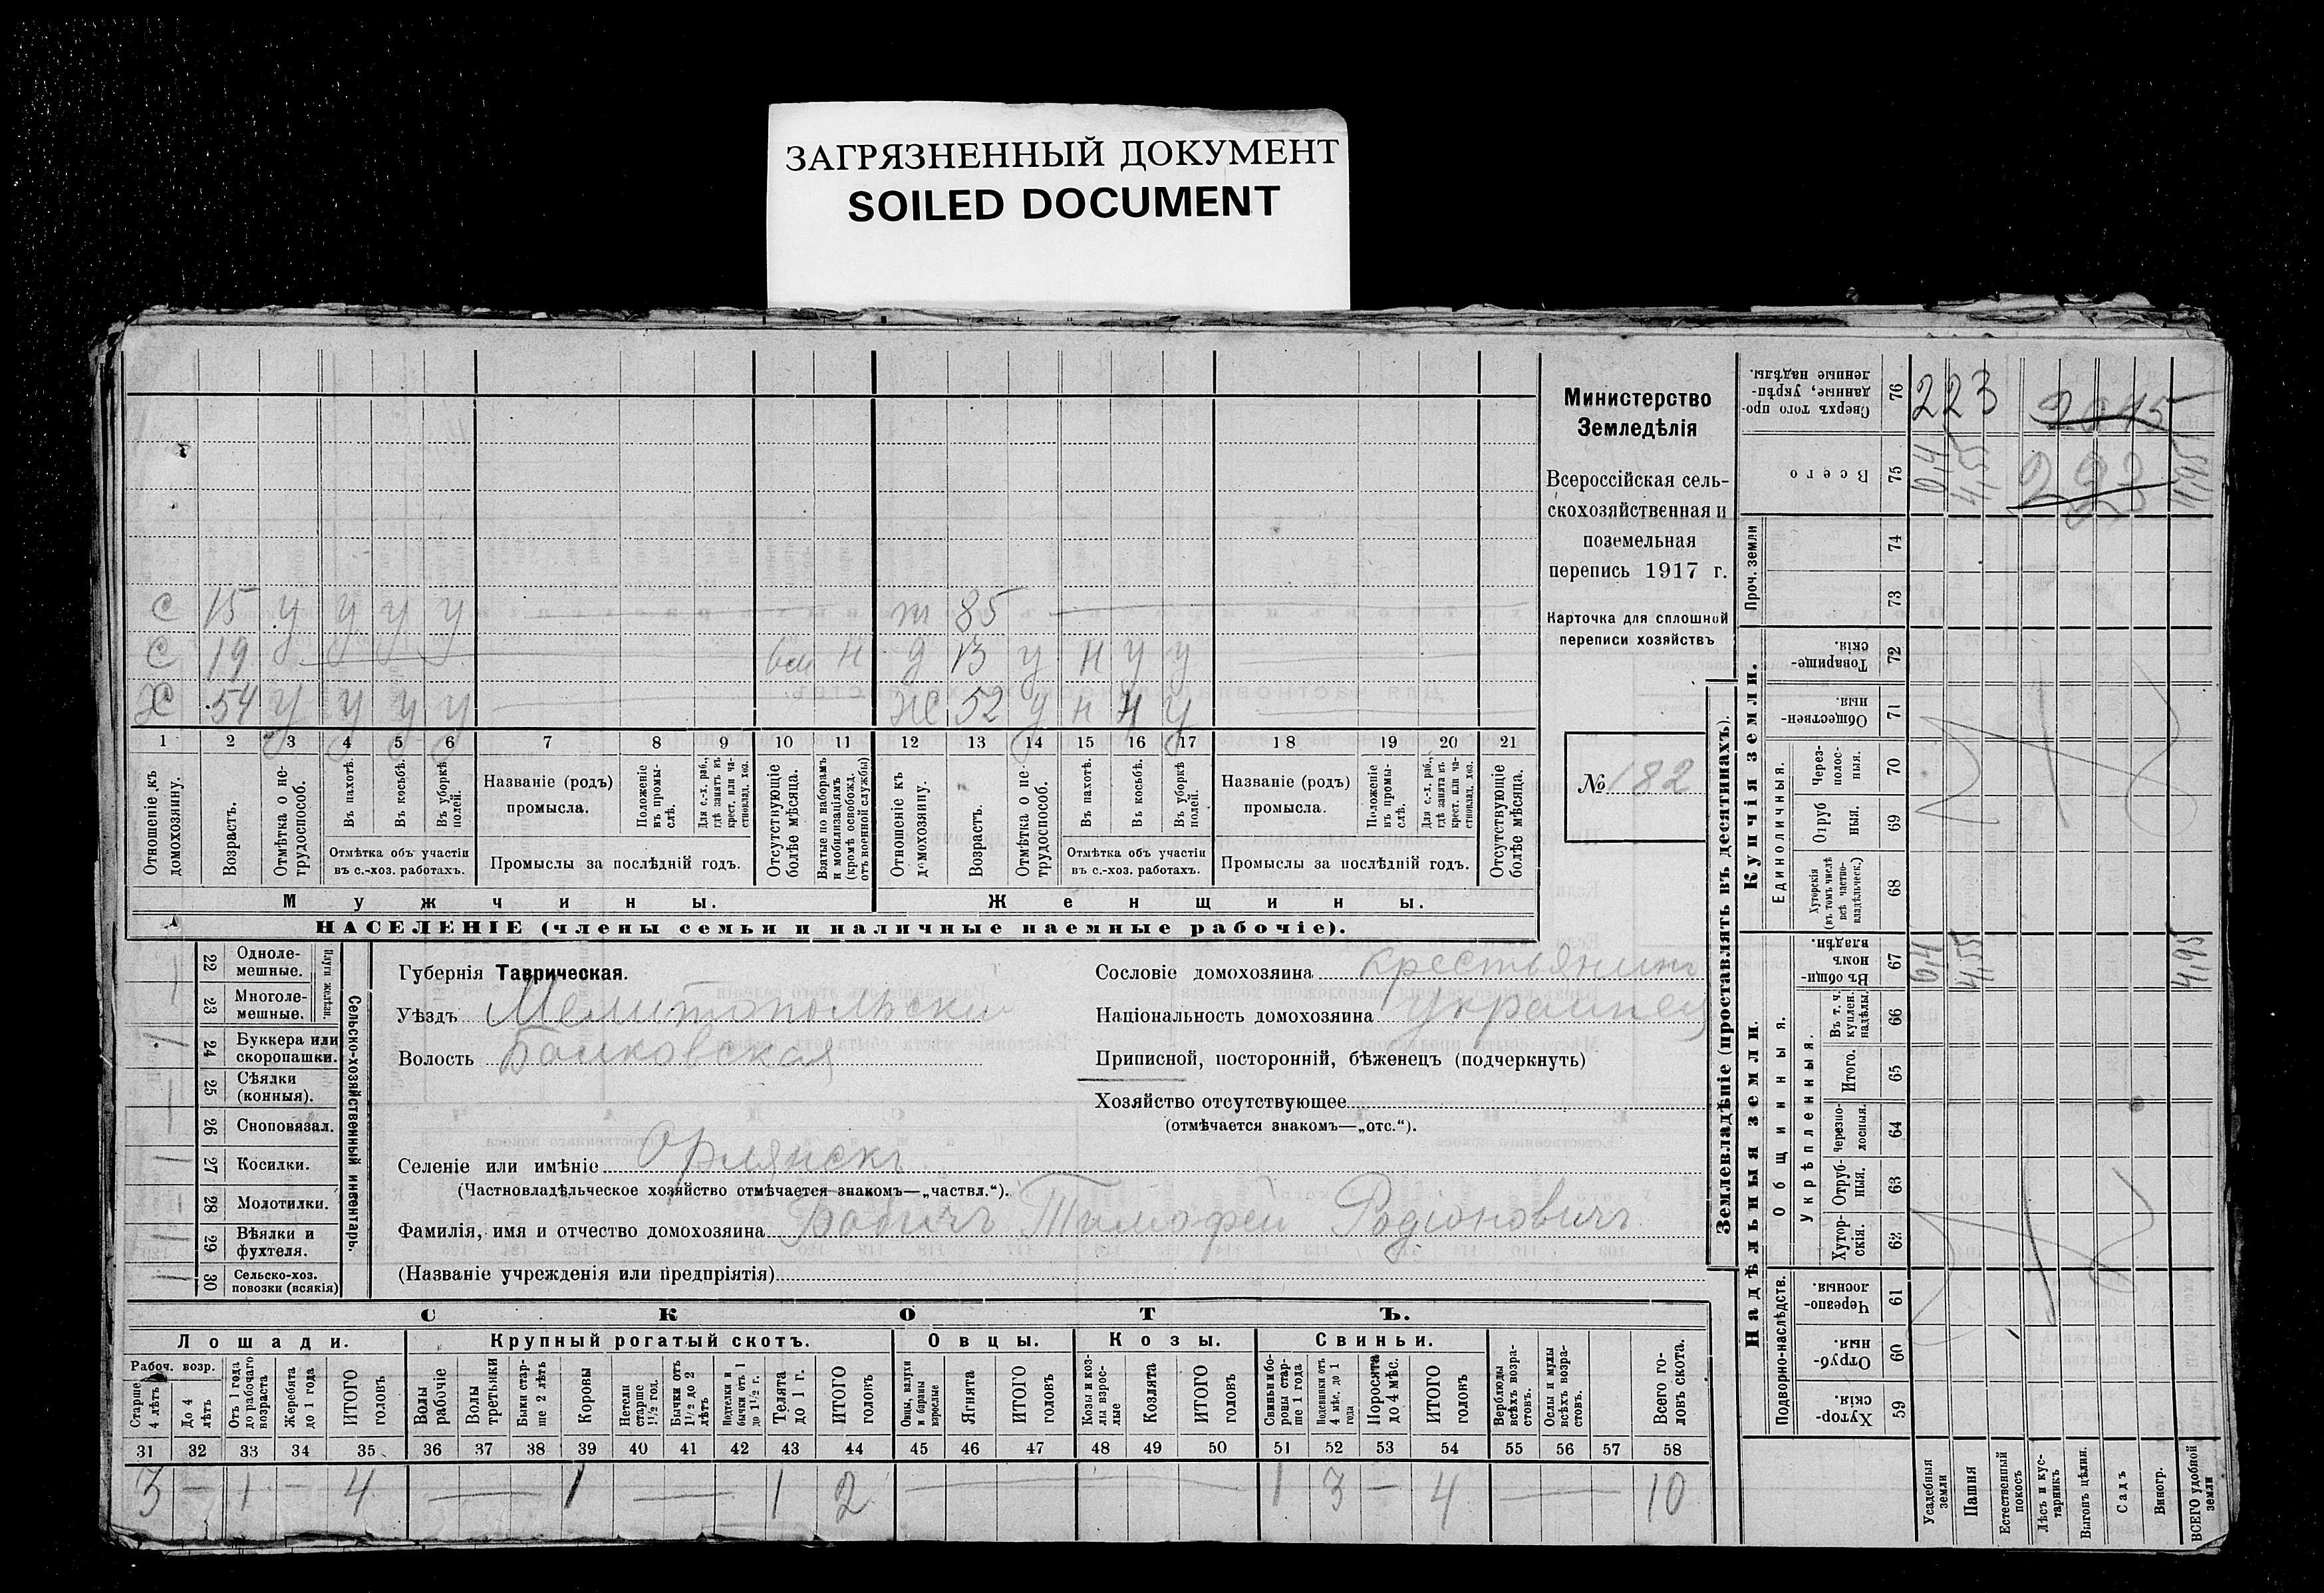 ЗАГРЯЗНЕННЫЙ ДОКУМЕНТ
SOILED DOCUMENT
С 15 у у у у — т 85 —
С 19 — Н д 13 у н у у
Х 54 у у у у — Ж 52 у н у —
1 2 3 4 5 6 7 8 9 10 11 12 13 14 15 16 17 18 19 20 21
Отношеніе къ домохозяину.
Возрастъ.
Отмѣтка о нетрудоспособ.
Въ пахотѣ.
Въ косьбѣ.
Въ уборкѣ полей.
Отмѣтка объ участіи
въ с.-хоз. работахъ.
Названіе (родъ)
промысла.
Положеніе въ промыслѣ.
Для с.-х. раб., гдѣ занятъ въ крест. или частновлад. хоз.
Промыслы за послѣдній годъ.
Отсутствующіе болѣе мѣсяца.
Взятые по наборамъ и мобилизаціямъ (кромѣ освобожд. отъ военной службы)
Отношеніе къ домохозяину.
Возрастъ.
Отмѣтка о нетрудоспособ.
Въ пахотѣ.
Въ косьбѣ.
Въ уборкѣ полей.
Отмѣтка объ участіи
въ с.-хоз. работахъ.
Названіе (родъ)
промысла.
Положеніе въ промыслѣ.
Для с.-х. раб., гдѣ занятъ въ крест. или частновлад. хоз.
Промыслы за послѣдній годъ.
Отсутствующіе болѣе мѣсяца.
Мужчины. Женщины.
НАСЕЛЕНІЕ (члены семьи и наличные наемные рабочіе).
Министерство
Земледѣлія
Всероссійская сель-
скохозяйственная и
поземельная
перепись 1917 г.
Карточка для сплошной
переписи хозяйствъ
№ 182
22 Одноле-
мешные.
23 Многоле-
мешные.
Плуги желѣзн.
24 Буккера или
скоропашки.
25 Сѣялки
(конныя).
26 Сноповязал.
27 Косилки.
28 Молотилки.
29 Вѣялки и
фухтеля.
30 Сельско-хоз.
повозки (всякія)
Сельско-хозяйственный инвентарь.
Губернія Таврическая.
Уѣздъ Мелитопольскій
Волость Балковская
Сословіе домохозяина крестьянинъ
Національность домохозяина украинец
Приписной, посторонній, бѣженецъ (подчеркнуть)
Хозяйство отсутствующее
(отмѣчается знакомъ—„отс.“).
Селеніе или имѣніе Орлянскъ
(Частновладѣльческое хозяйство отмѣчается знакомъ—„частвл.“).
Фамилія, имя и отчество домохозяина Бабичъ Тимофей Родіоновичъ
(Названіе учрежденія или предпріятія)
СКОТЪ.
Лошади. Крупный рогатый скотъ. Овцы. Козы. Свиньи.
Рабоч. возр.
Старше 4 лѣтъ
До 4 лѣтъ
Отъ 1 года до рабочаго возраста
Жеребята до 1 года
ИТОГО головъ
Волы рабочіе
Волы третьяки
Быки старше 2 лѣтъ
Коровы
Нетели старше 1½ год.
Бычки отъ 1½ до 2 лѣтъ
Подтелки и бычки отъ 1 до 1½ г.
Телята до 1 г.
ИТОГО головъ
Овцы, валухи и бараны взрослые
Ягнята
ИТОГО головъ
Козы и козлы взрослые
Козлята
ИТОГО головъ
Свиньи и боровы старше 1 года
Подсвинки отъ 4 мѣс. до 1 года
Поросята до 4 мѣс.
ИТОГО головъ
Верблюды всѣхъ возрастовъ.
Ослы и мулы всѣхъ возрастовъ.
Всего головъ скота.
31 32 33 34 35 36 37 38 39 40 41 42 43 44 45 46 47 48 49 50 51 52 53 54 55 56 57 58
3 — 1 — 4 — 1 — 1 2 — 1 3 — 4 — 10
Землевладѣніе (проставлять въ десятинахъ).
Сверхъ того проданные, укрѣпленные надѣлы. 76 223 2015
Всего 75 0,4 4,55 223
Проч. земли
74
73
Купчія земли.
Товарищескія. 72
Общественныя 71
Единоличныя.
Черезполосныя. 70
Отрубныя. 69
Хуторскія (въ томъ числѣ всѣ частновладѣльческ.) 68
Надѣльныя земли.
Общинныя.
Въ общинномъ владѣн. 67 0,4 4,55 4,95
Укрѣпленныя.
Въ т. ч. куплен. надѣлы. 66
Итого. 65
Черезполосныя. 64
Отрубныя. 63
Хуторскія. 62
Подворно-наслѣдств.
Черезполосныя. 61
Отрубныя. 60
Хуторскія 59
Усадебныя земли
Пашня
Естественный покосъ
Лѣсъ и кустарникъ
Выгонъ цѣлин.
Садъ
Виногр.
ВСЕГО удобной земли